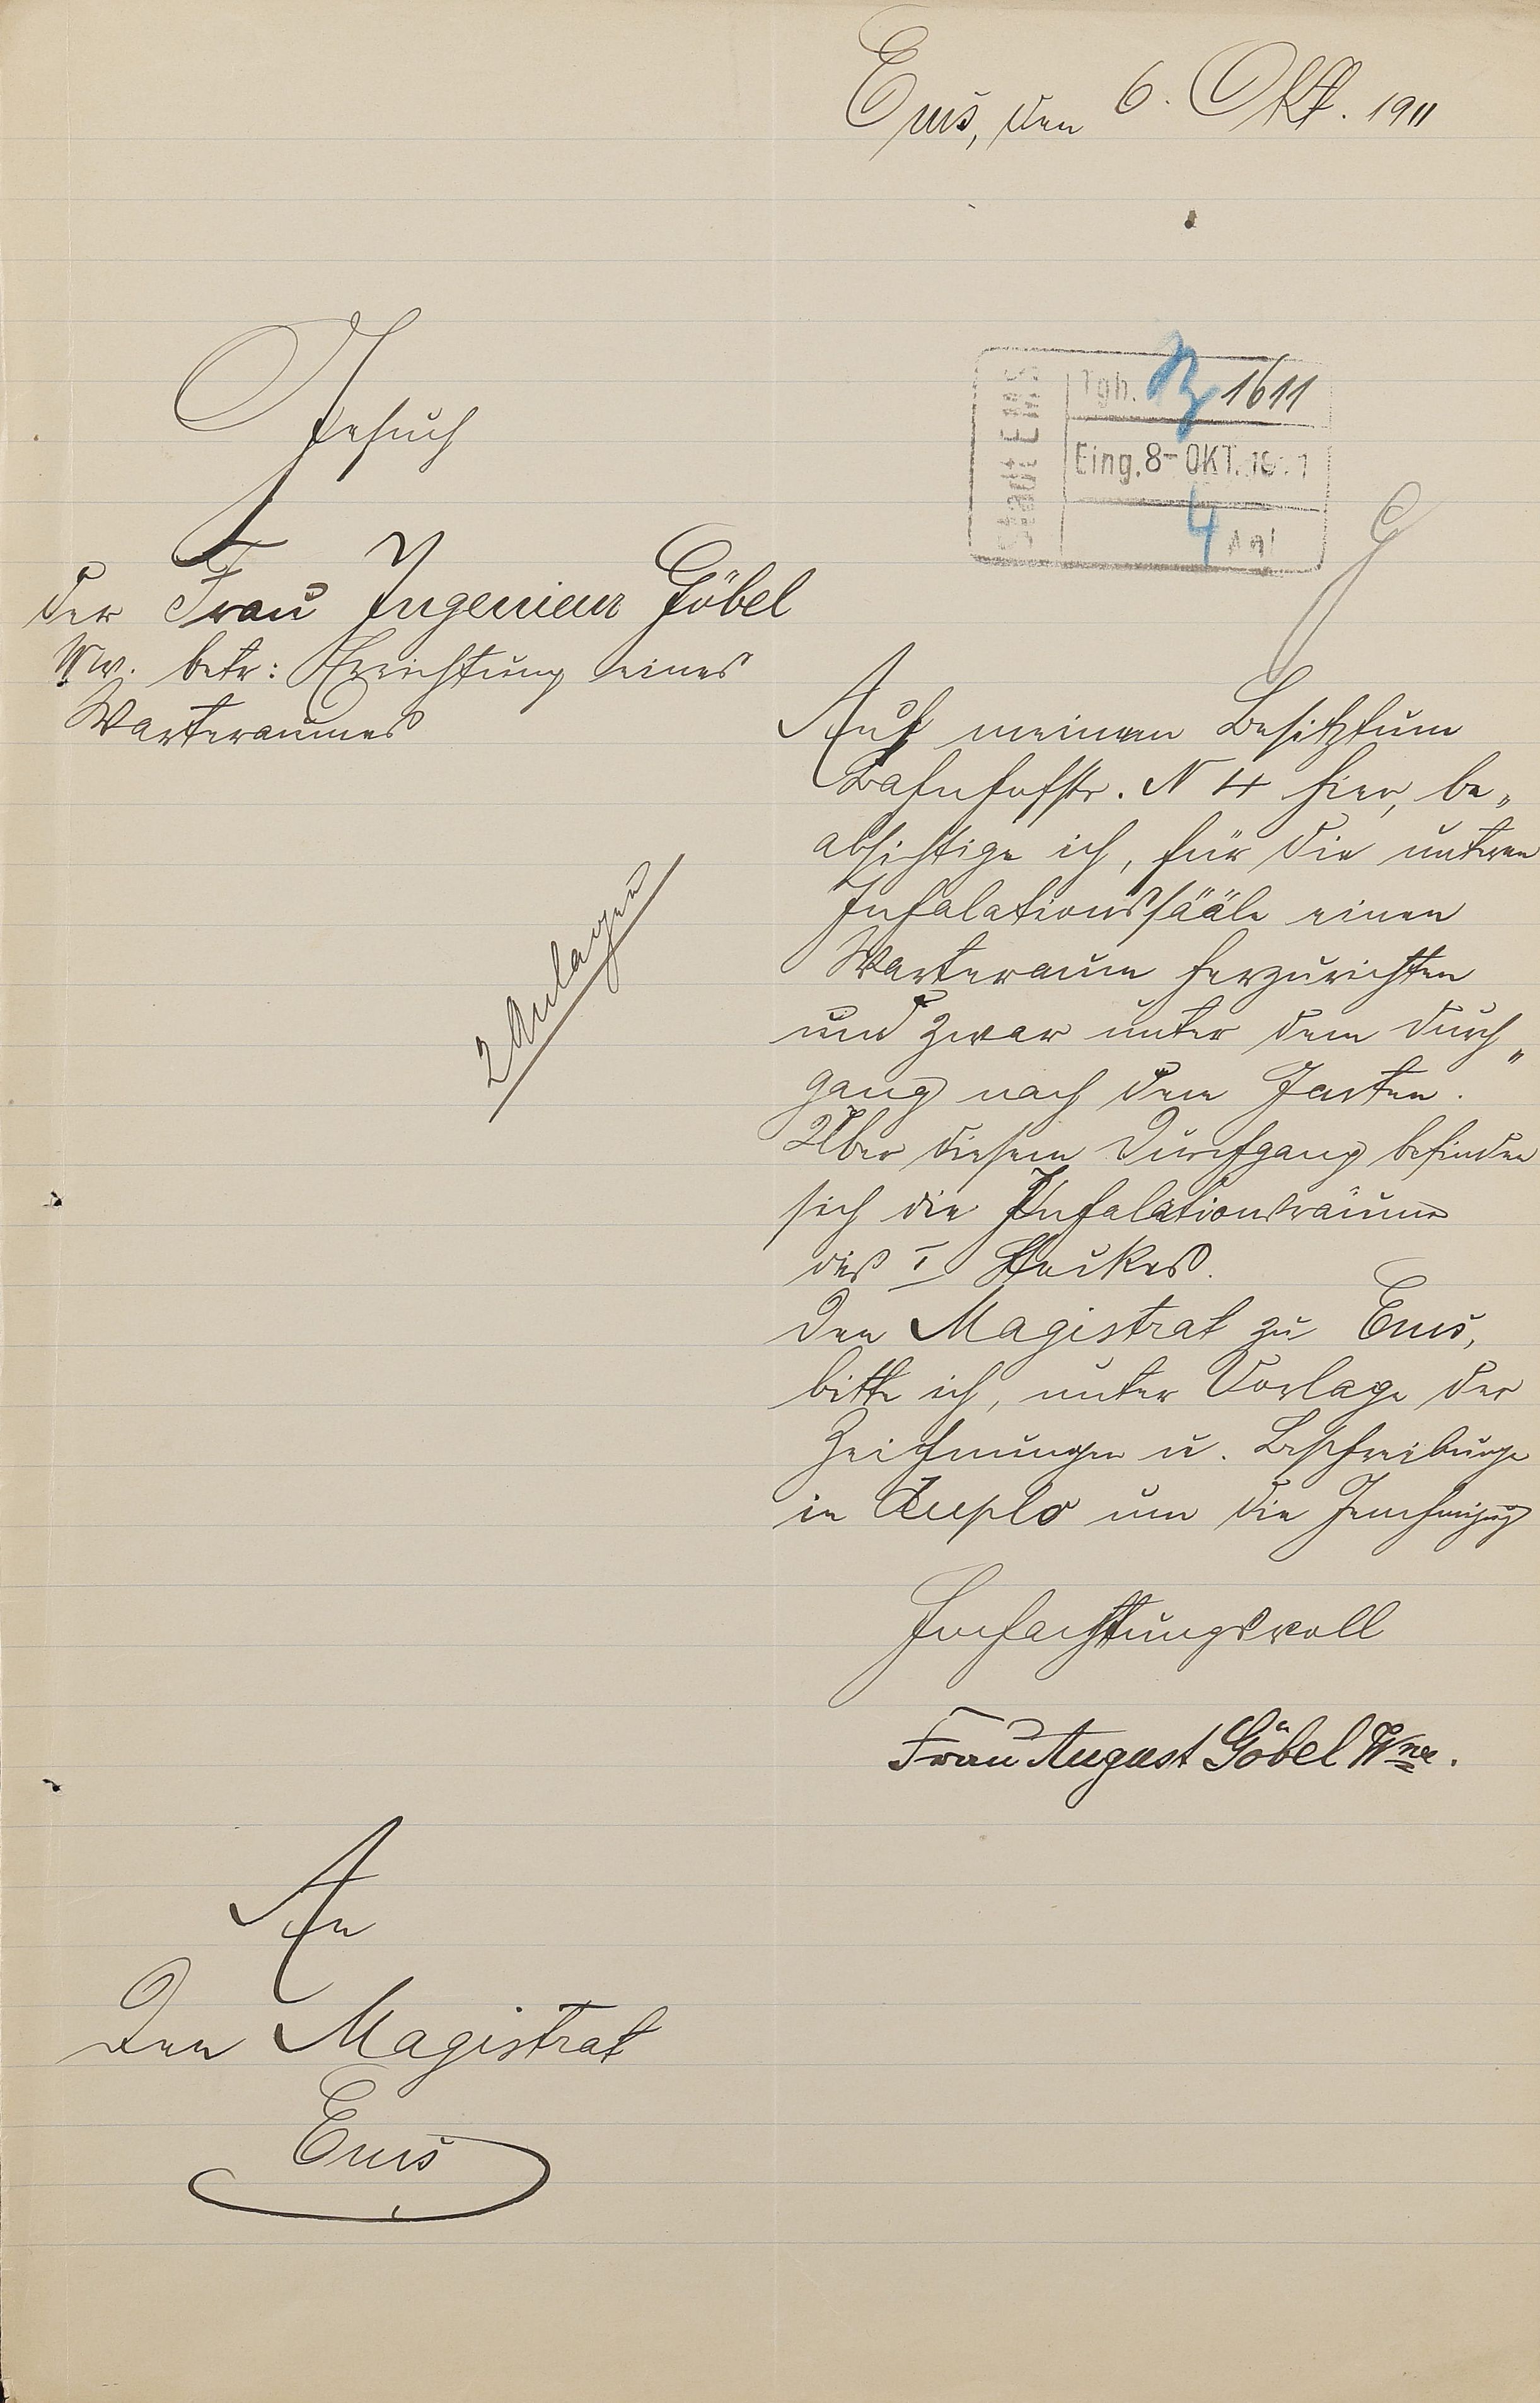 Ems, den 6. Okt. 1911
Stadt EMS
Tgb. B 1611
Eing. 8-OKT. 1911
4 Agl
Gesuch
der Frau Ingenieur Göbel
Ww. betr: Errichtung eines
Warteraumes
2 Anlagen
Auf meinem Besitztum
Bahnhofstr. N 4 hier, be„
absichtige ich, für die unteren
Inhalationssääle einen
Warteraum herzurichten
und zwar unter dem Durch„
gang nach dem Garten.
Über diesem Durchgang befinden
sich die Inhalationsräume
des I Stockes.
Den Magistrat zu Ems,
bitte ich, unter Vorlage der
Zeichnungen u. Beschreibunge
in Duplo um die Genehmigung
Hochachtungsvoll
Frau August Göbel Wwe.
An
Den Magistrat
Ems